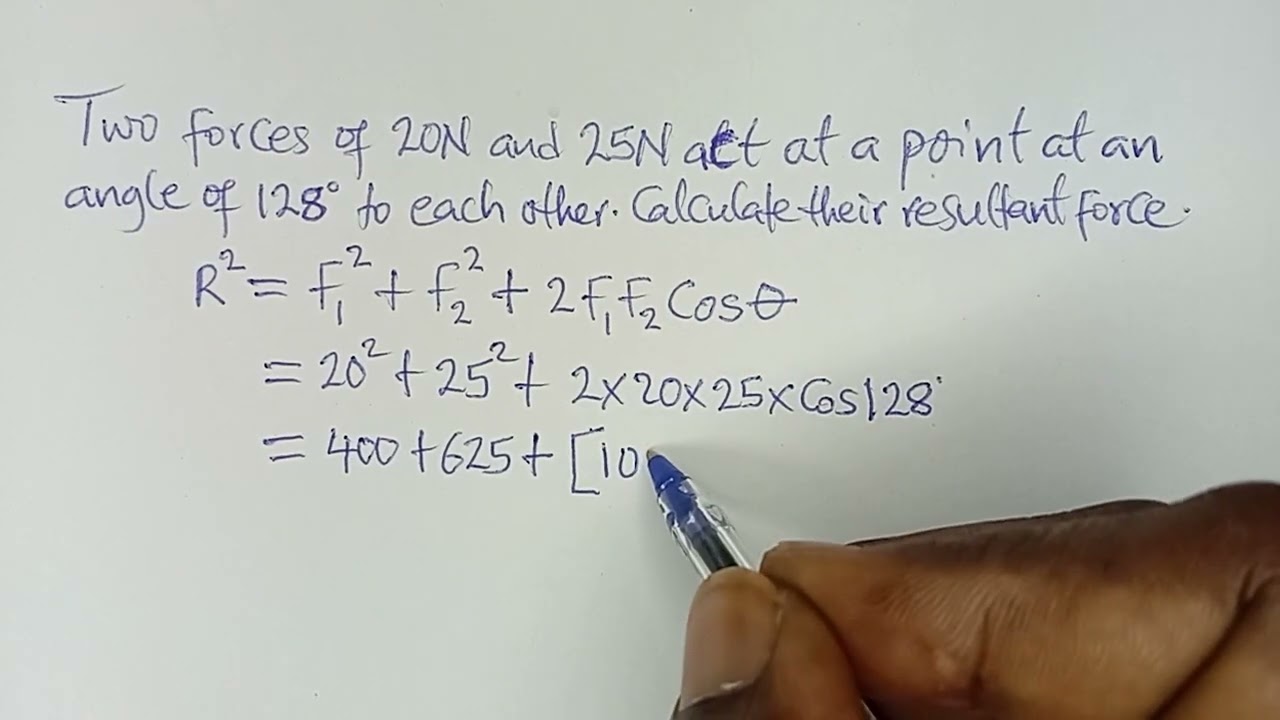 Two forces of 20N and 25N act at a point at an
angle of 128° to each other. Calculate their resultant force.
R² = F₁² + F₂² + 2F₁F₂ Cosθ
= 20² + 25² + 2×20×25×Cos128°
= 400 + 625 + [10